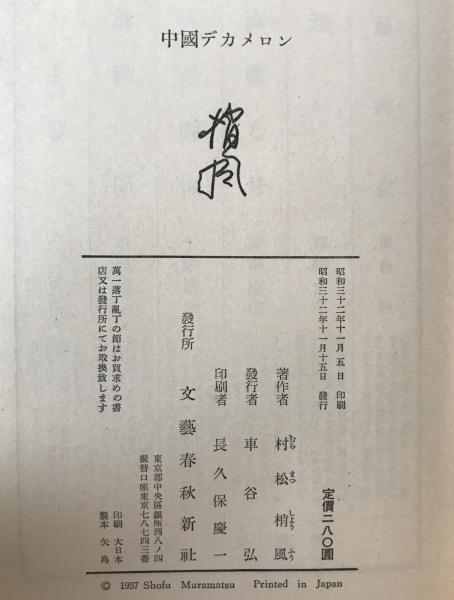 中國デカメロン
梢風
昭和三十二年十一月五日 印刷
昭和三十二年十一月十五日 發行
定價二八〇圓
著作者 村松梢風
むら まつ しよう ふう
發行者 車谷弘
印刷者 長久保慶一
發行所 文藝春秋新社
東京都中央區銀座西八ノ四
振替口座東京七八七四三番
萬一落丁亂丁の節はお買求めの書
店又は發行所にてお取換致します
印刷 大日本
製本 矢島
© 1957 Shofu Muramatsu Printed in Japan